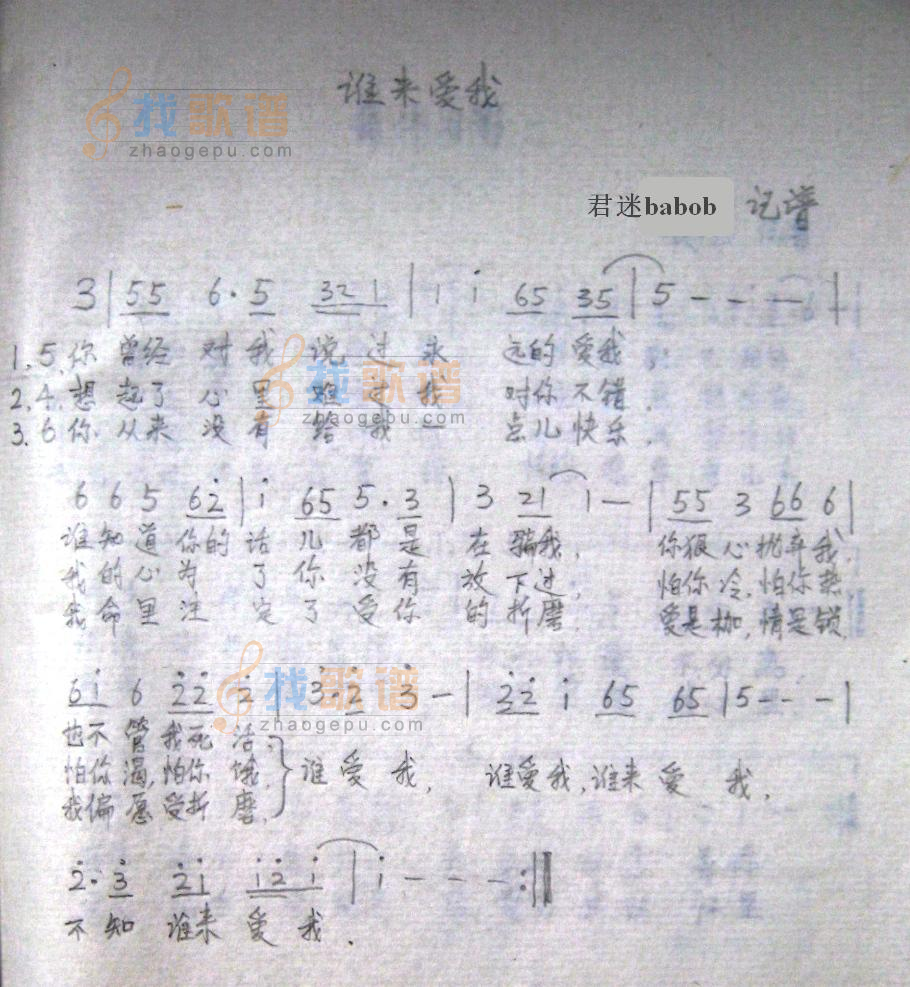 谁来爱我
找歌谱
zhaogepu.com
君迷babob 记谱
3 | 55 6·5 321 | 1 i 65 35 | 5 - - - |
1.5.你曾经对我说过永远的爱我,
2.4.想起了心里难过我对你不错,
3.6你从来没有给我一点儿快乐,
找歌谱
zhaogepu.com
6 6 5 62̇ | i 65 5·3 | 3 21 1 - | 55 3 66 6 |
谁知道你的话儿都是在骗我, 你狠心抛弃我,
我的心为了你没有放下过, 怕你冷,怕你热,
我命里注定了受你的折磨, 爱是枷,情是锁,
6i 6 2̇2̇ 2̇ 3̇·2̇ 3̇ - | 3̇2̇ i 65 65 | 5 - - - |
找歌谱
zhaogepu.com
也不管我死活,
怕你渴,怕你饿, 谁爱我, 谁爱我,谁来爱我,
我偏愿受折磨,
2̇·3̇ 2̇i i2̇i | i - - - :||
不知谁来爱我.